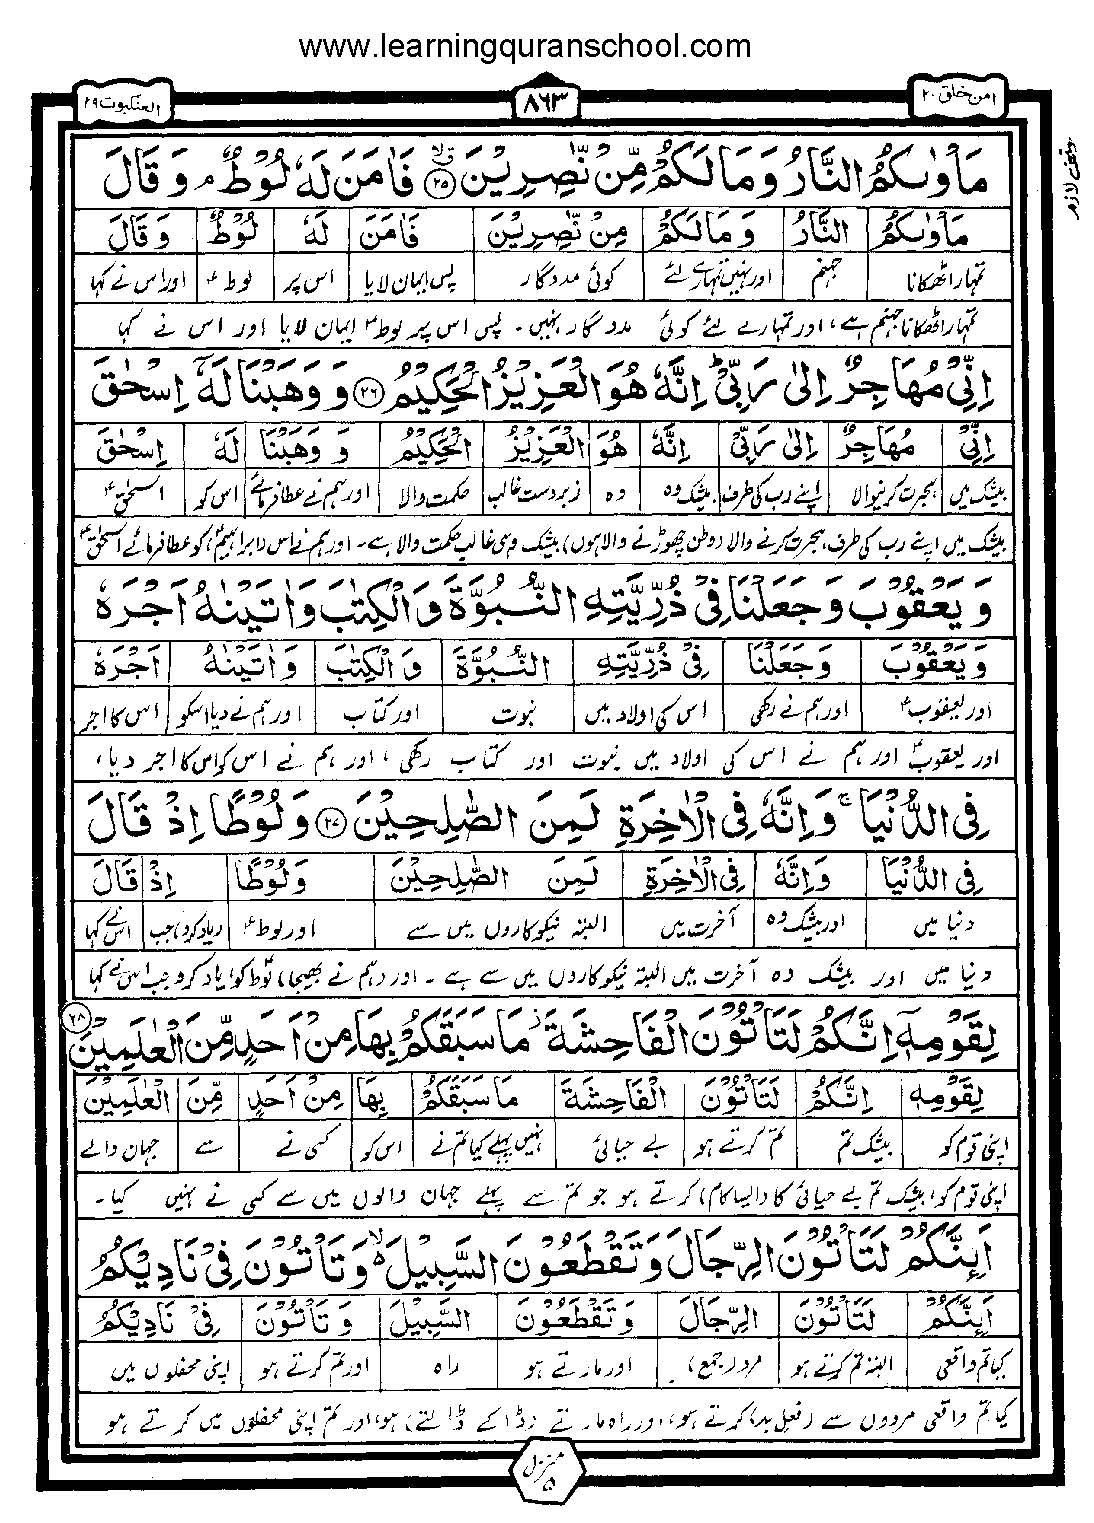 www.learningquranschool.com
امن خلق ۲۰
۸۶۳
العنکبوت ۲۹
مَاۡوٰىكُمُ النَّارُ وَمَا لَكُمۡ مِّنۡ نّٰصِرِيۡنَ ﴿۲۵﴾ فَاٰمَنَ لَهٗ لُوۡطٌ ۘ وَقَالَ
وقف لازم
مَاۡوٰىكُمُ | النَّارُ | وَمَا لَكُمۡ | مِّنۡ نّٰصِرِيۡنَ | فَاٰمَنَ | لَهٗ | لُوۡطٌ | وَقَالَ
تمہارا ٹھکانا | جہنم | اور نہیں تمہارے لئے | کوئی مددگار | پس ایمان لایا | اس پر | لوطؑ | اور اس نے کہا
تمہارا ٹھکانا جہنم ہے، اور تمہارے لئے کوئی مددگار نہیں۔ پس اس پر لوطؑ ایمان لایا اور اس نے کہا
اِنِّىۡ مُهَاجِرٌ اِلٰى رَبِّىۡ ؕ اِنَّهٗ هُوَ الۡعَزِيۡزُ الۡحَكِيۡمُ ﴿۲۶﴾ وَوَهَبۡنَا لَهٗۤ اِسۡحٰقَ
اِنِّىۡ | مُهَاجِرٌ | اِلٰى رَبِّىۡ | اِنَّهٗ | هُوَ | الۡعَزِيۡزُ | الۡحَكِيۡمُ | وَ وَهَبۡنَا | لَهٗ | اِسۡحٰقَ
بیشک میں | ہجرت کرنیوالا | اپنے رب کی طرف | بیشک وہ | وہ | زبردست غالب | حکمت والا | اور ہم نے عطا فرمائے | اس کو | اسحٰقؑ
بیشک میں اپنے رب کی طرف ہجرت کرنے والا (وطن چھوڑنے والا ہوں) بیشک وہی غالب حکمت والا ہے۔ اور ہم نے اس (ابراہیمؑ) کو عطا فرمائے اسحٰقؑ
وَيَعۡقُوۡبَ وَجَعَلۡنَا فِىۡ ذُرِّيَّتِهِ النُّـبُوَّةَ وَالۡكِتٰبَ وَاٰتَيۡنٰهُ اَجۡرَهٗ
وَيَعۡقُوۡبَ | وَجَعَلۡنَا | فِىۡ ذُرِّيَّتِهِ | النُّـبُوَّةَ | وَالۡكِتٰبَ | وَاٰتَيۡنٰهُ | اَجۡرَهٗ
اور یعقوبؑ | اور ہم نے رکھی | اس کی اولاد میں | نبوت | اور کتاب | اور ہم نے دیا اسکو | اس کا اجر
اور یعقوبؑ اور ہم نے اس کی اولاد میں نبوت اور کتاب رکھی، اور ہم نے اس کو اس کا اجر دیا،
فِى الدُّنۡيَا ۚ وَاِنَّهٗ فِى الۡاٰخِرَةِ لَمِنَ الصّٰلِحِيۡنَ ﴿۲۷﴾ وَلُوۡطًا اِذۡ قَالَ
فِى الدُّنۡيَا | وَاِنَّهٗ | فِى الۡاٰخِرَةِ | لَمِنَ الصّٰلِحِيۡنَ | وَلُوۡطًا | اِذۡ | قَالَ
دنیا میں | اور بیشک وہ | آخرت میں | البتہ نیکوکاروں میں سے | اور لوطؑ | (یاد کرو) جب | اس نے کہا
دنیا میں اور بیشک وہ آخرت میں البتہ نیکوکاروں میں سے ہے۔ اور (ہم نے بھیجا) لوطؑ کو (یاد کرو) جب اس نے کہا
لِقَوۡمِهٖۤ اِنَّكُمۡ لَتَاۡتُوۡنَ الۡفَاحِشَةَ ۫ مَا سَبَقَكُمۡ بِهَا مِنۡ اَحَدٍ مِّنَ الۡعٰلَمِيۡنَ ﴿۲۸﴾
لِقَوۡمِهٖ | اِنَّكُمۡ | لَتَاۡتُوۡنَ | الۡفَاحِشَةَ | مَا سَبَقَكُمۡ | بِهَا | مِنۡ اَحَدٍ | مِّنَ | الۡعٰلَمِيۡنَ
اپنی قوم کو | بیشک تم | تم کرتے ہو | بے حیائی | نہیں پہلے کیا تم نے | اس کو | کسی نے | سے | جہان والے
اپنی قوم کو، بیشک تم بے حیائی کا (ایسا کام) کرتے ہو جو تم سے پہلے جہان والوں میں سے کسی نے نہیں کیا۔
اَئِنَّكُمۡ لَتَاۡتُوۡنَ الرِّجَالَ وَتَقۡطَعُوۡنَ السَّبِيۡلَ ۙ وَتَاۡتُوۡنَ فِىۡ نَادِيۡكُمُ
اَئِنَّكُمۡ | لَتَاۡتُوۡنَ | الرِّجَالَ | وَتَقۡطَعُوۡنَ | السَّبِيۡلَ | وَتَاۡتُوۡنَ | فِىۡ نَادِيۡكُمُ
کیا تم واقعی | البتہ تم کرتے ہو | مرد (جمع) | اور مارتے ہو | راہ | اور تم کرتے ہو | اپنی محفلوں میں
کیا تم واقعی مردوں سے (فعل بد) کرتے ہو، اور راہ مارتے (ڈاکے ڈالتے) ہو، اور تم اپنی محفلوں میں کرتے ہو
منزل ۵